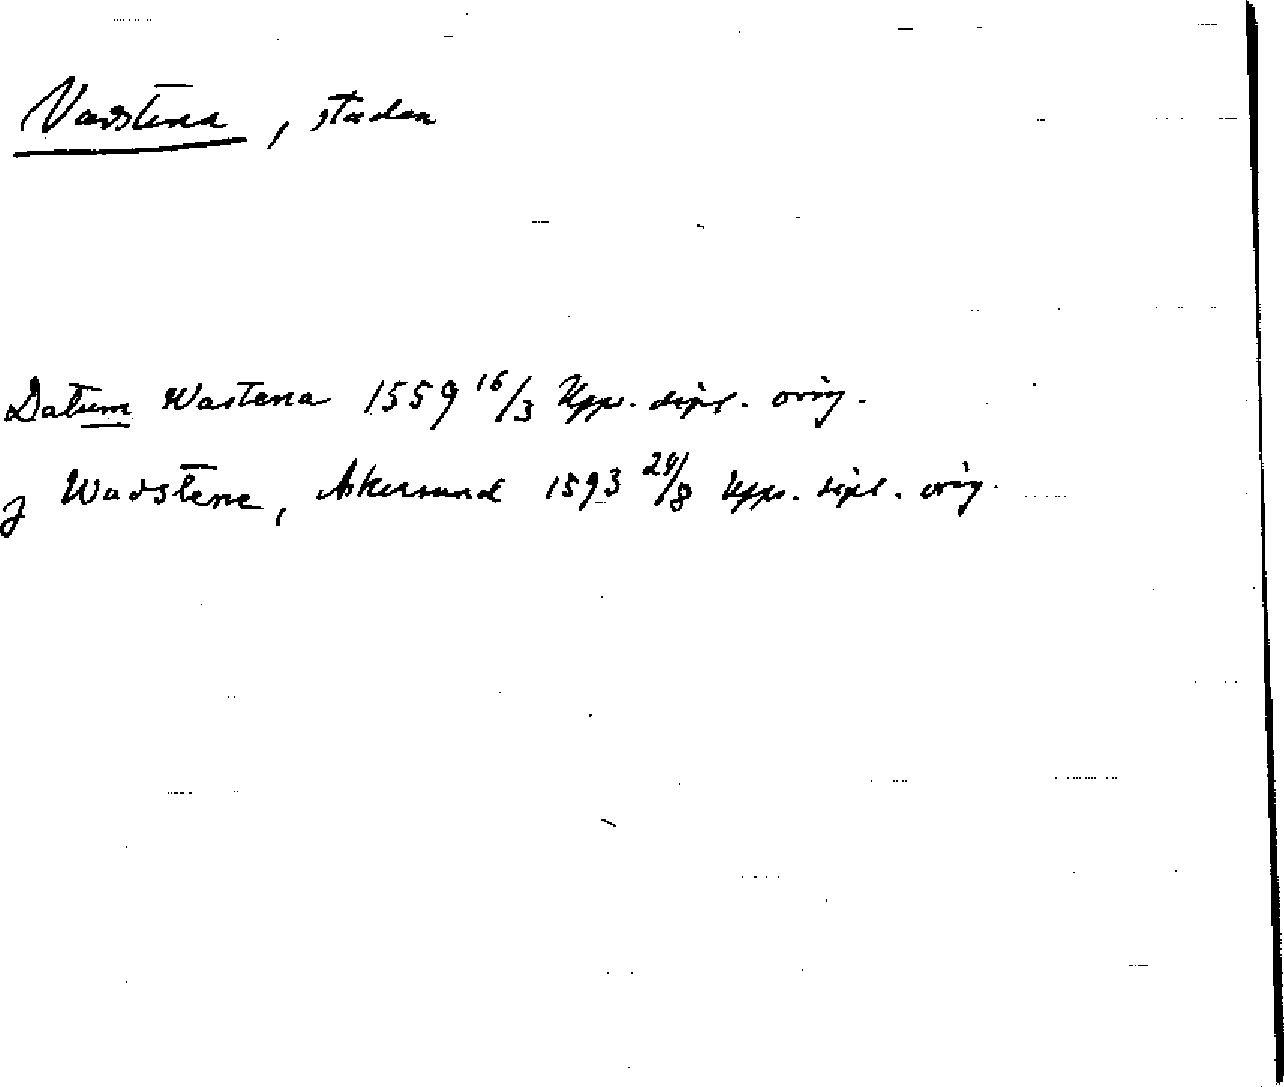 Vadstena, staden
Datum Wastena 1559 16/3 Upps. dipl. orig.
j Wadstene, Askersund 1593 24/8 Upps. dipl. orig.